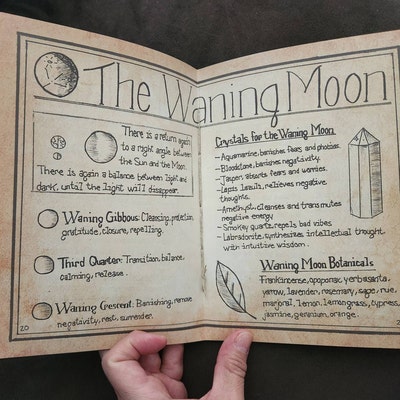 The Waning Moon
There is a return again
to a right angle between
the Sun and the Moon.
There is again a balance between light and
dark, until the light will disappear.
Waning Gibbous: Cleansing, protection,
gratitude, closure, repelling.
Third Quarter: Transition, balance,
calming, release.
Waning Crescent: Banishing, remove
negativity, rest, surrender.
20
Crystals for the Waning Moon
- Aquamarine, banishes fears, and phobias.
- Bloodstone, banishes negativity.
- Jasper, absorbs fears and worries.
- Lapis Lazuli, relieves negative
thoughts.
- Amethyst, cleanses and transmutes
negative energy
- Smokey quartz, repels bad vibes
- Labradorite, synthesizes intellectual thought
with intuitive wisdom.
Waning Moon Botanicals
Frankincense, opoponax, yerba santa,
yarrow, lavender, rosemary, sage, rue,
marjoral, lemon, lemongrass, cypress,
jasmine, geranium, orange.